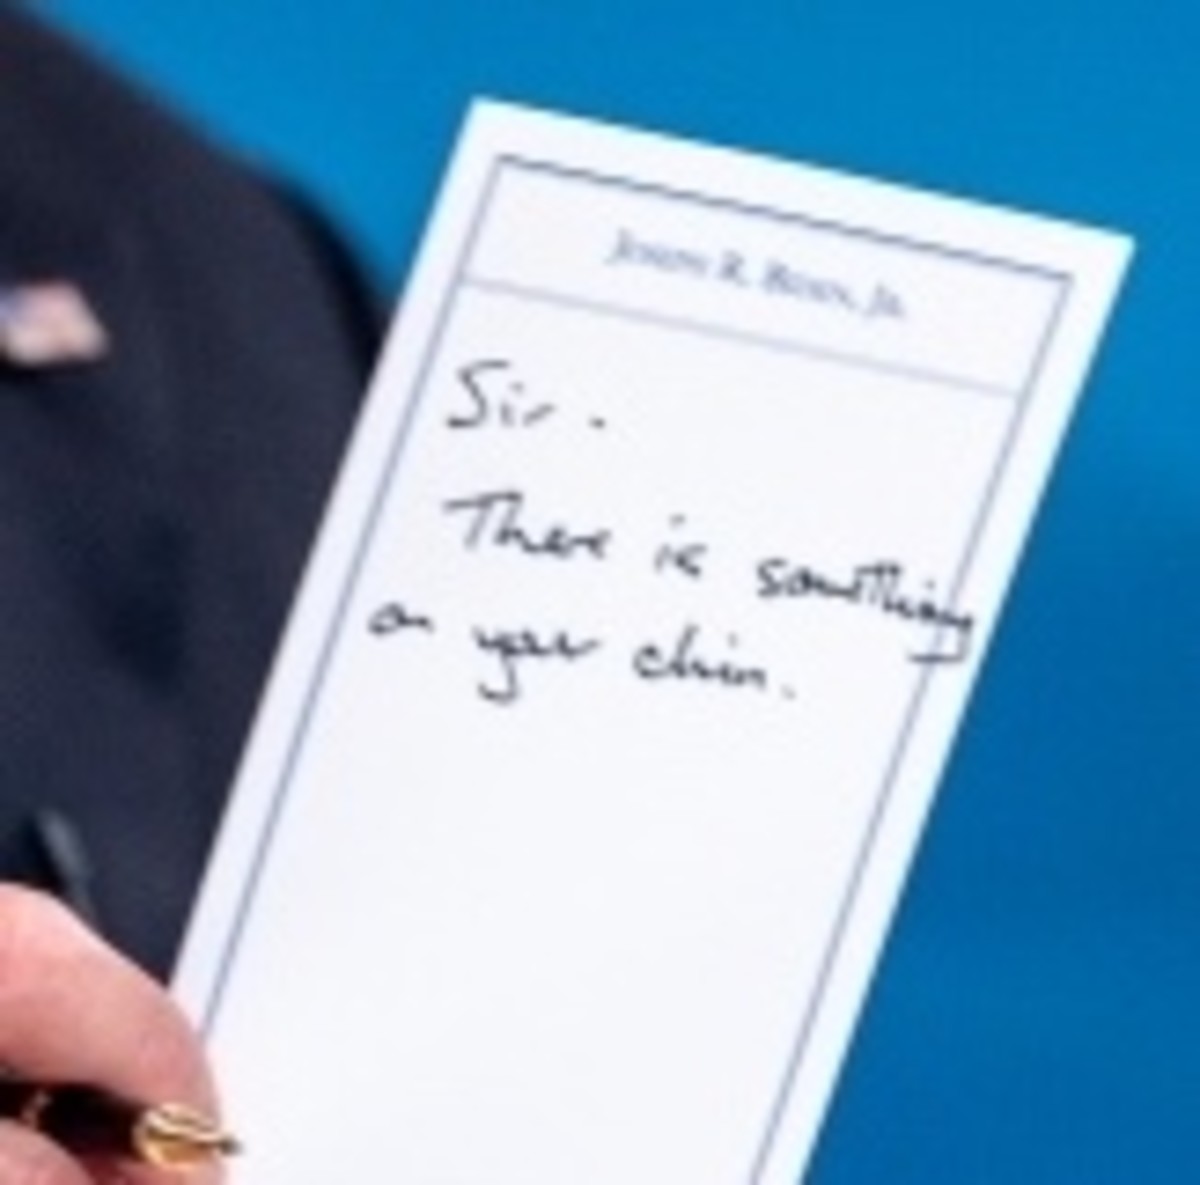 Joseph R. Biden, Jr.
Sir.
There is something
on your chin.